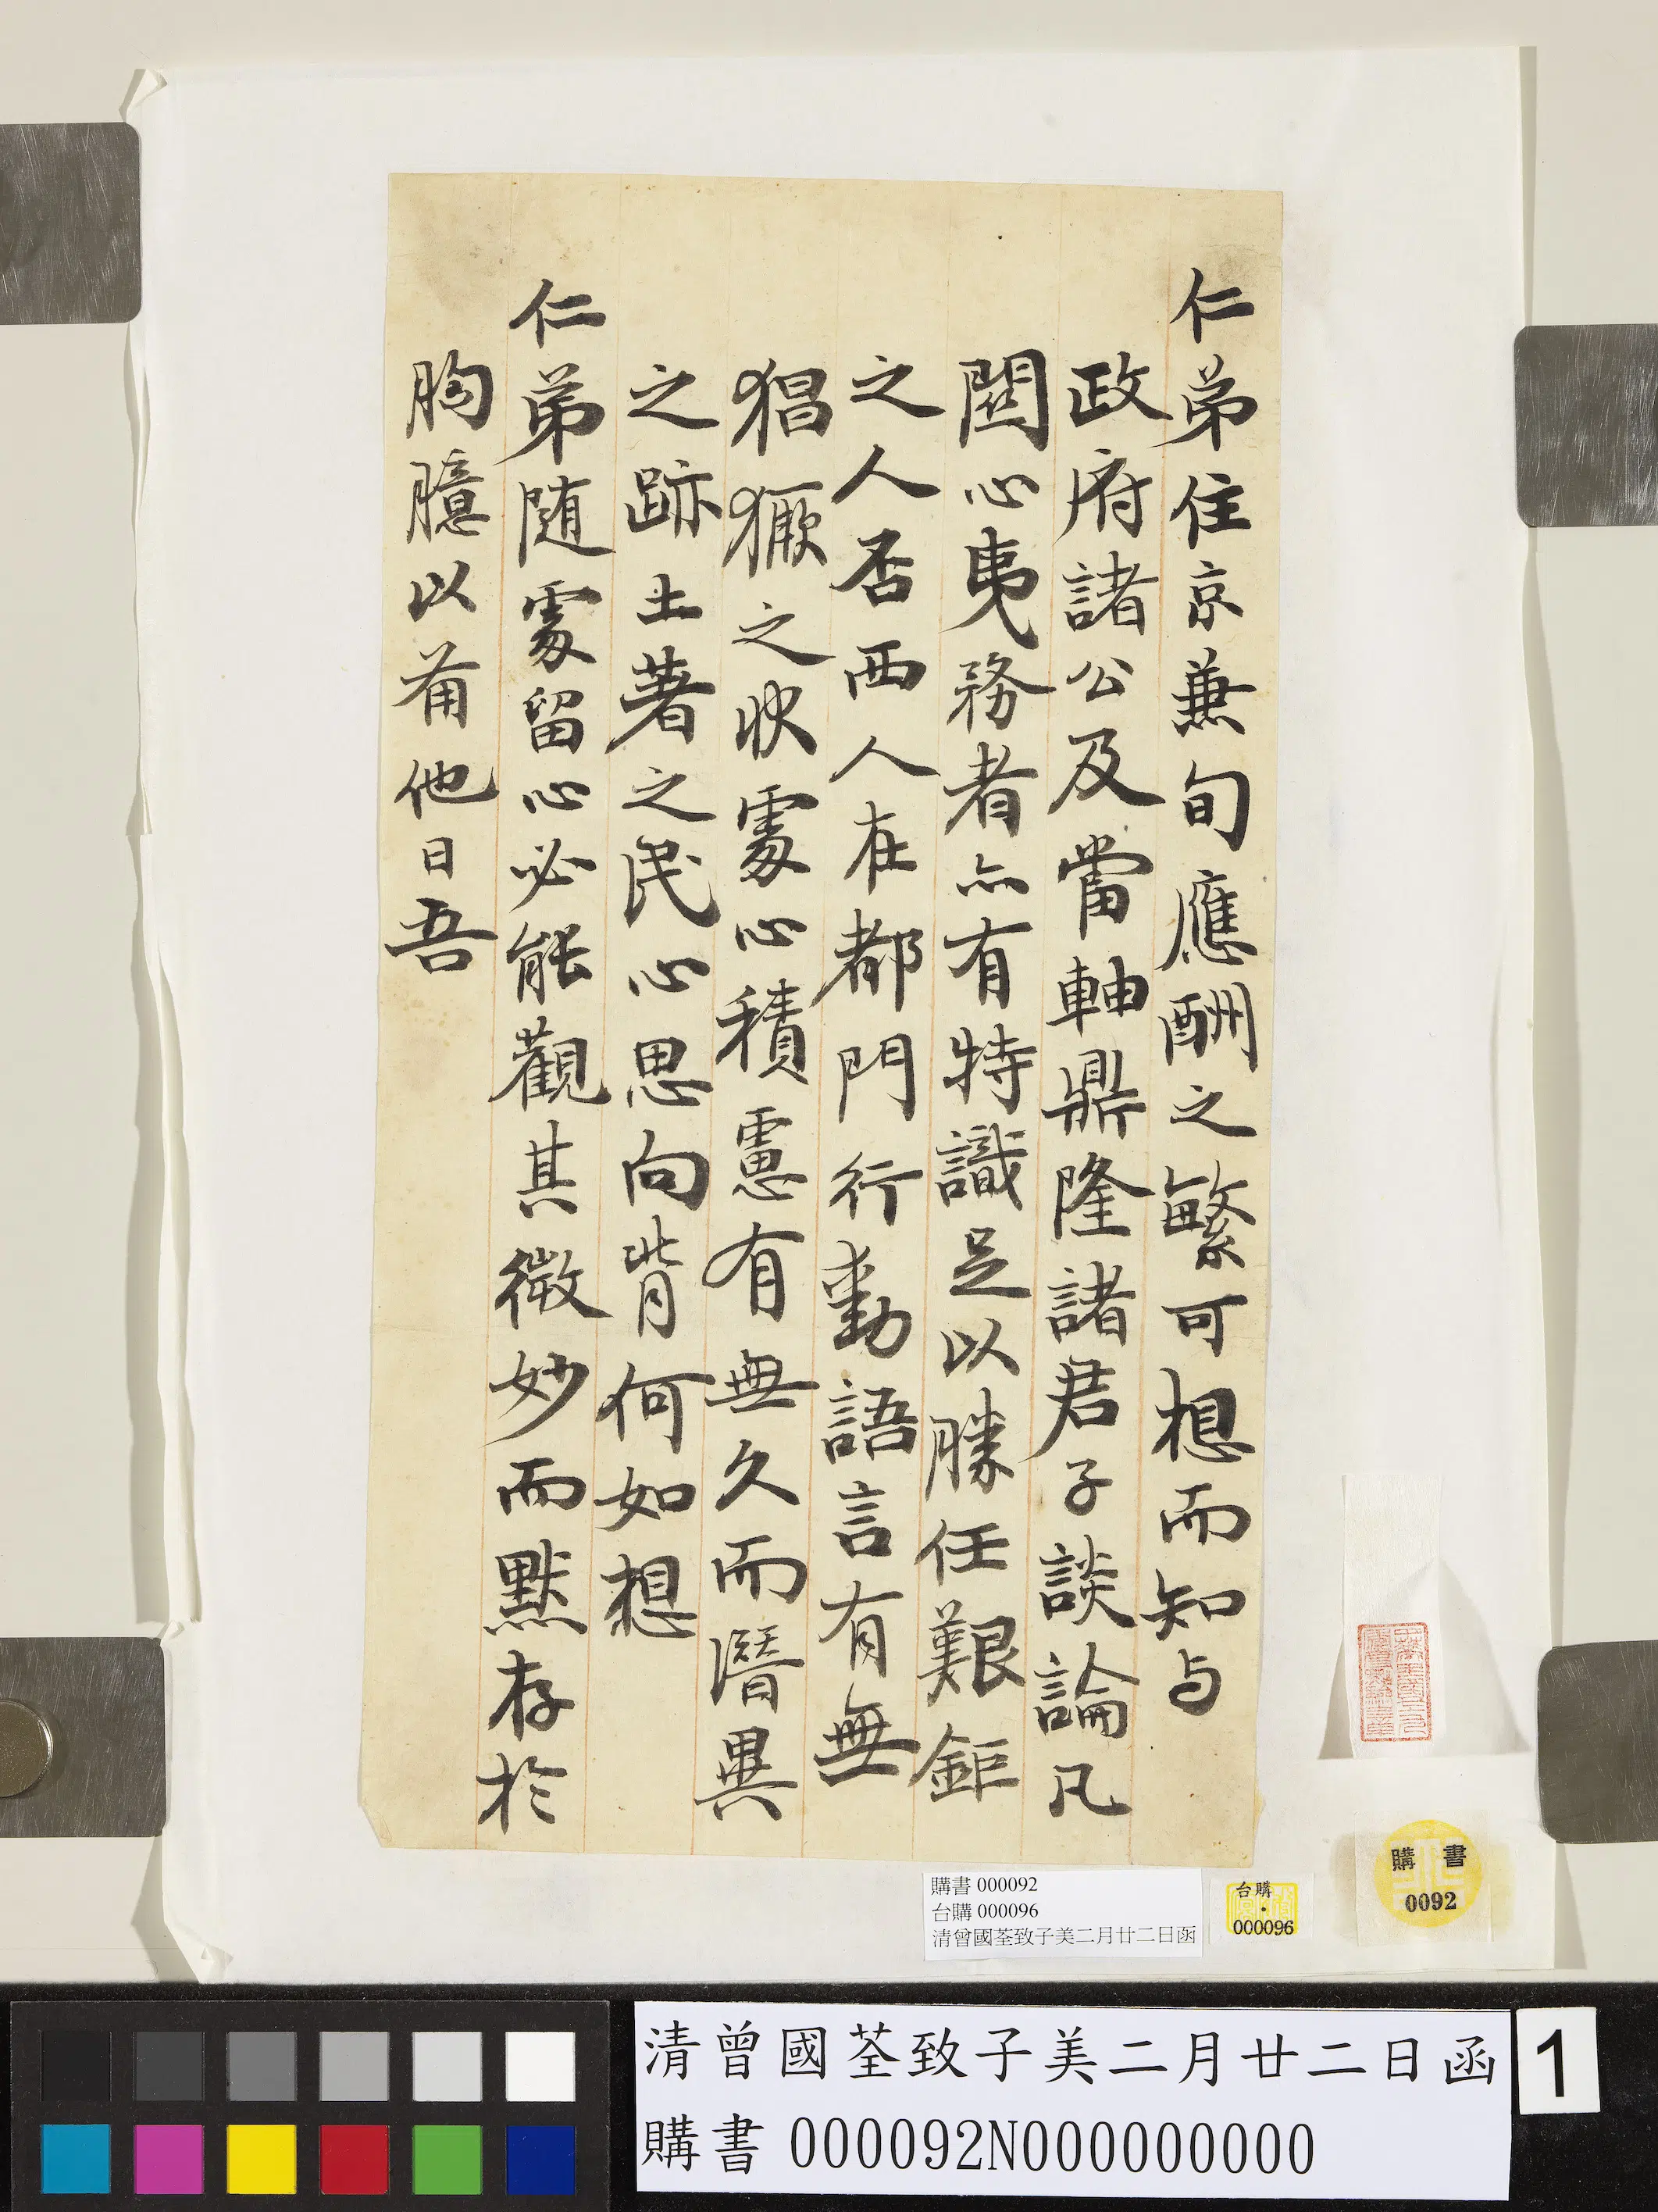 仁弟住京兼旬應酬之繁可想而知与
政府諸公及當軸鼎隆諸君子談論凡
關心夷務者亦有特識足以勝任艱鉅
之人否西人在都門行動語言有無
猖獗之狀處心積慮有無久而潛異
之跡土著之民心思向背何如想
仁弟隨處留心必能觀其微妙而默存於
胸臆以備他日吾
購書 000092
台購 000096
清曾國荃致子美二月廿二日函
台購
000096
購書
0092
清曾國荃致子美二月廿二日函
購書 000092N000000000
1